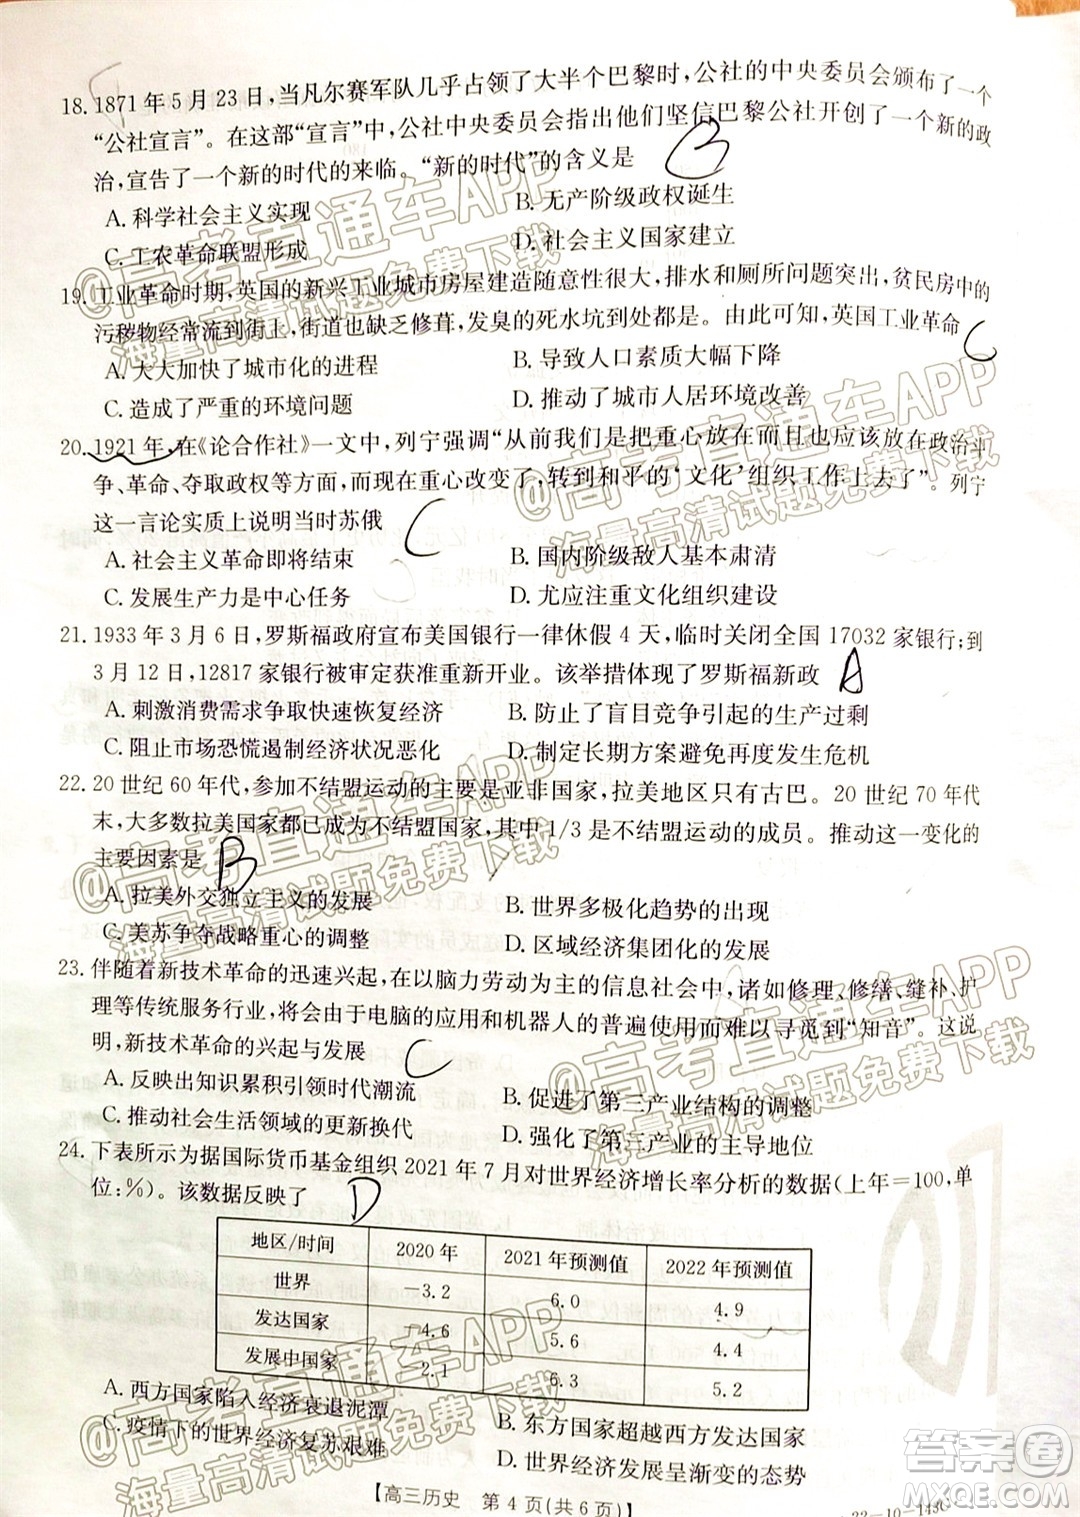 18. 1871年5月23日,当凡尔赛军队几乎占领了大半个巴黎时,公社的中央委员会颁布了一个
“公社宣言”。在这部“宣言”中,公社中央委员会指出他们坚信巴黎公社开创了一个新的政
治,宣告了一个新的时代的来临。“新的时代”的含义是 B
A. 科学社会主义实现 B. 无产阶级政权诞生
C. 工农革命联盟形成 D. 社会主义国家建立
19. 工业革命时期,英国的新兴工业城市房屋建造随意性很大,排水和厕所问题突出,贫民房中的
污秽物经常流到街上,街道也缺乏修葺,发臭的死水坑到处都是。由此可知,英国工业革命 C
A. 大大加快了城市化的进程 B. 导致人口素质大幅下降
C. 造成了严重的环境问题 D. 推动了城市人居环境改善
20. 1921年,在《论合作社》一文中,列宁强调“从前我们是把重心放在而且也应该放在政治斗
争、革命、夺取政权等方面,而现在重心改变了,转到和平的‘文化’组织工作上去了”。列宁
这一言论实质上说明当时苏俄 C
A. 社会主义革命即将结束 B. 国内阶级敌人基本肃清
C. 发展生产力是中心任务 D. 尤应注重文化组织建设
21. 1933年3月6日,罗斯福政府宣布美国银行一律休假4天,临时关闭全国17032家银行;到
3月12日,12817家银行被审定获准重新开业。该举措体现了罗斯福新政 A
A. 刺激消费需求争取快速恢复经济 B. 防止了盲目竞争引起的生产过剩
C. 阻止市场恐慌遏制经济状况恶化 D. 制定长期方案避免再度发生危机
22. 20世纪60年代,参加不结盟运动的主要是亚非国家,拉美地区只有古巴。20世纪70年代
末,大多数拉美国家都已成为不结盟国家,其中1/3是不结盟运动的成员。推动这一变化的
主要因素是 B
A. 拉美外交独立主义的发展 B. 世界多极化趋势的出现
C. 美苏争夺战略重心的调整 D. 区域经济集团化的发展
23. 伴随着新技术革命的迅速兴起,在以脑力劳动为主的信息社会中,诸如修理、修缮、缝补、护
理等传统服务行业,将会由于电脑的应用和机器人的普遍使用而难以寻觅到“知音”。这说
明,新技术革命的兴起与发展 C
A. 反映出知识累积引领时代潮流 B. 促进了第三产业结构的调整
C. 推动社会生活领域的更新换代 D. 强化了第三产业的主导地位
24. 下表所示为据国际货币基金组织2021年7月对世界经济增长率分析的数据(上年=100,单
位:%)。该数据反映了 D
地区/时间 2020年 2021年预测值 2022年预测值
世界 -3.2 6.0 4.9
发达国家 -4.6 5.6 4.4
发展中国家 -2.1 6.3 5.2
A. 西方国家陷入经济衰退泥潭 B. 东方国家超越西方发达国家
C. 疫情下的世界经济复苏艰难 D. 世界经济发展呈渐变的态势
【高三历史 第4页(共6页)】
22-10-143C
@高考直通车APP
海量高清试题免费下载
@高考直通车APP
海量高清试题免费下载
@高考直通车APP
海量高清试题免费下载
@高考直通车APP
海量高清试题免费下载
@高考直通车APP
海量高清试题免费下载
答案圈
MXQE.COM